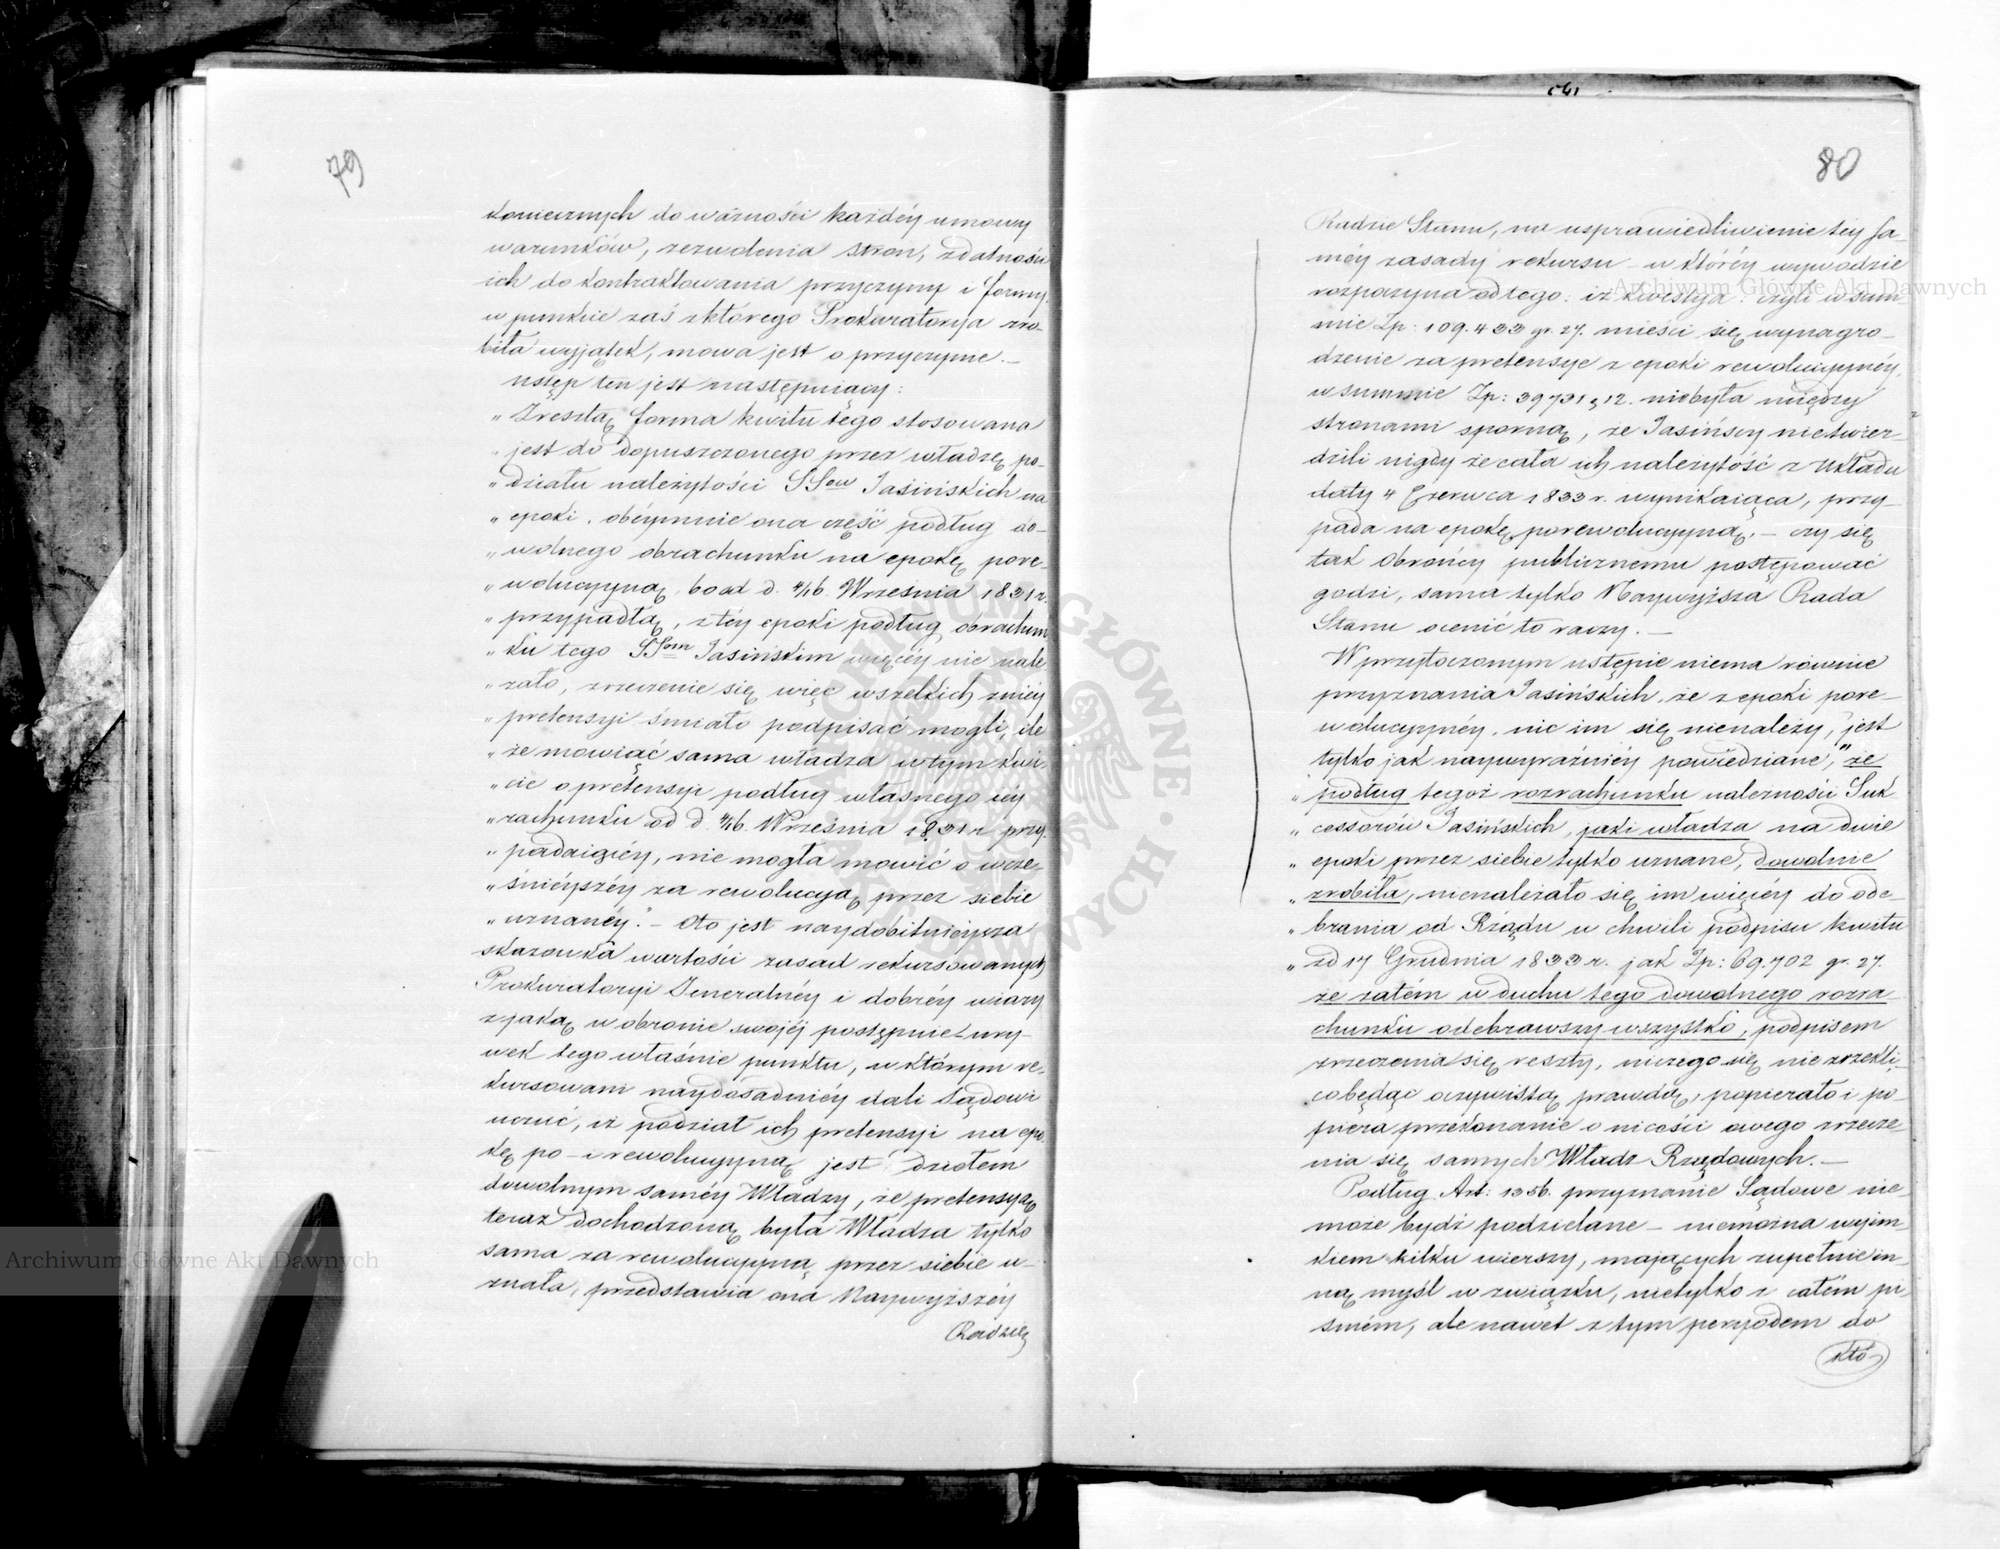 79
koniecznych do ważności każdéy umowy
warunków, zezwolenia stron, zdatności
ich do kontraktowania przyczyny i formy,
w punkcie zaś z którego Prokuratorya zro-
biła wyjątek, mowa jest o przyczynie. –
ustęp ten jest następuiący:
„ Zresztą forma kwitu tego stosowana
„ jest do dopuszczonego przez władzę po-
„ działu należytości SSów Jasińskich na
„ epoki, obéymnie ona część podług do-
„ wolnego obrachunku na epokę pore-
„ wolucyyną, bo od d. 4/16 Września 1831 r.
„ przypadłą, z téy epoki podług obrachun
„ ku tego SSom Jasińskim więcéy nie nale
„ żało, zrzeczenie się więc wszelkich z niéy
„ pretensyi śmiało podpisać mogli, ile
„ że mowiąc sama władza w tym kwi-
„ cie o pretensyi podług własnego iéy
„ rachunku od d. 4/16 Września 1831 r. przy-
„ padaiącéy, nie mogła mowić o wcze-
„ śniéyszéy za rewolucyą przez siebie
„ uznanéy." – Oto jest naydobitnieysza
skazowka wartości zasad rekursowanych
Prokuratoryi Jeneralnéy i dobréy wiary
z jaką w obronie swojéj postępuie ury-
wek tego właśnie punktu, w którym re-
kursowani naydosadniéy dali Sądowi
uczuć, iż podział ich pretensyi na epo
kę po – i rewolucyyną jest dziełem
dowolnym saméy Władzy, że pretensyą
teraz dochodzoną była Władza tylko
sama za rewolucyyną przez siebie u-
znała, przedstawia ona Naywyższéy
Radzie
80
Radzie Stanu, na usprawiedliwienie téy sa-
méy zasady rekursu – w któréy wywodzie
rozpoczyna od tego: iż kwestya: czyli w sum-
mie Zp: 109.433 gr. 27. mieści się wynagro-
dzenie za pretensye z epoki rewolucyynéy,
w summie Zp: 39731 gr 12. niebyła między
stronami sporną, że Jasińscy nietwier-
dzili nigdy że cała ich należytość z układu
daty 4 Czerwca 1833 r. wynikaiąca, przy-
pada na epokę porewolucyyną. – czy się
tak Obrońcy publicznemu postępować
godzi, sama tylko Naywyższa Rada
Stanu ocenić to raczy. –
W przytoczonym ustępie niema równie
przyznania Jasińskich, że z epoki pore-
wolucyynéy, nic im się nienależy, jest
tylko jak naywyraźniéy powiedziane, „że
„ podług tegoż rozrachunku należności Suk-
„ cessorów Jasińskich, jaki władza na dwie
„ epoki przez siebie tylko uznane, dowolnie
„ zrobiła, nienależało się im więcéy do ode-
„ brania od Rządu w chwili podpisu kwitu
„ z d 17 Grudnia 1833 r. jak Zp: 69.702 gr. 27.
że zatém w duchu tego dowolnego rozra-
chunku odebrawszy wszystko, podpisem
zrzeczenia się reszty, niczego się nie zrzekli,
co będąc oczywistą prawdą, popierało i po-
piera przekonanie o nicości owego zrzecze-
nia się samych Władz Rządowych. –
Podług Art: 1356. przyznanie Sądowe nie-
może bydź podzielane – niemożna wyim-
kiem kilku wierszy, mających zupełnie in-
ną myśl w związku, nietylko z całém pi-
smém, ale nawet z tym peryodem do
któ-
Archiwum Główne Akt Dawnych
Archiwum Główne Akt Dawnych